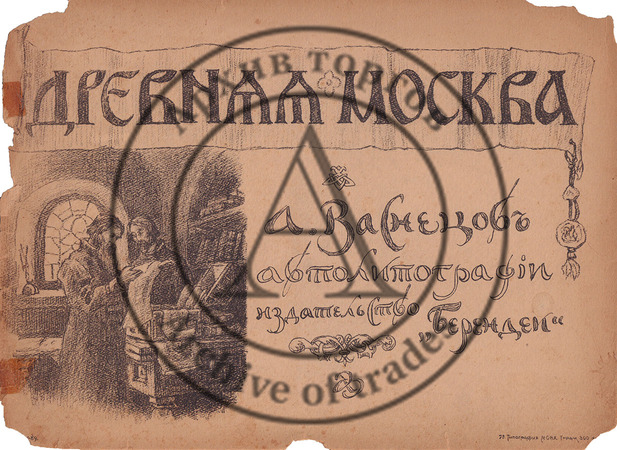 ДРЕВНЯЯ МОСКВА
А. ВаСнецовъ
автолитографіи
издательСтво
„Беренден“
Архив торгов
Archive of trades